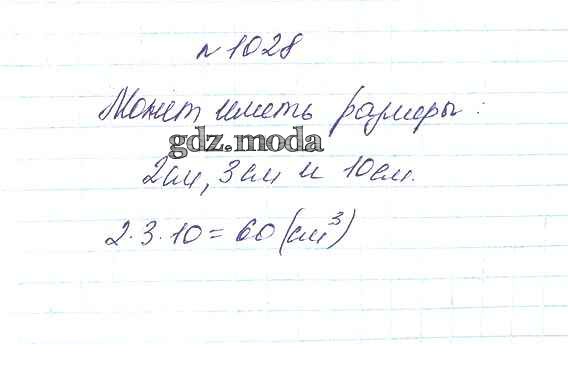 № 1028
Может иметь размеры:
gdz.moda
2 см, 3 см и 10 см.
2·3·10 = 60 (см³)